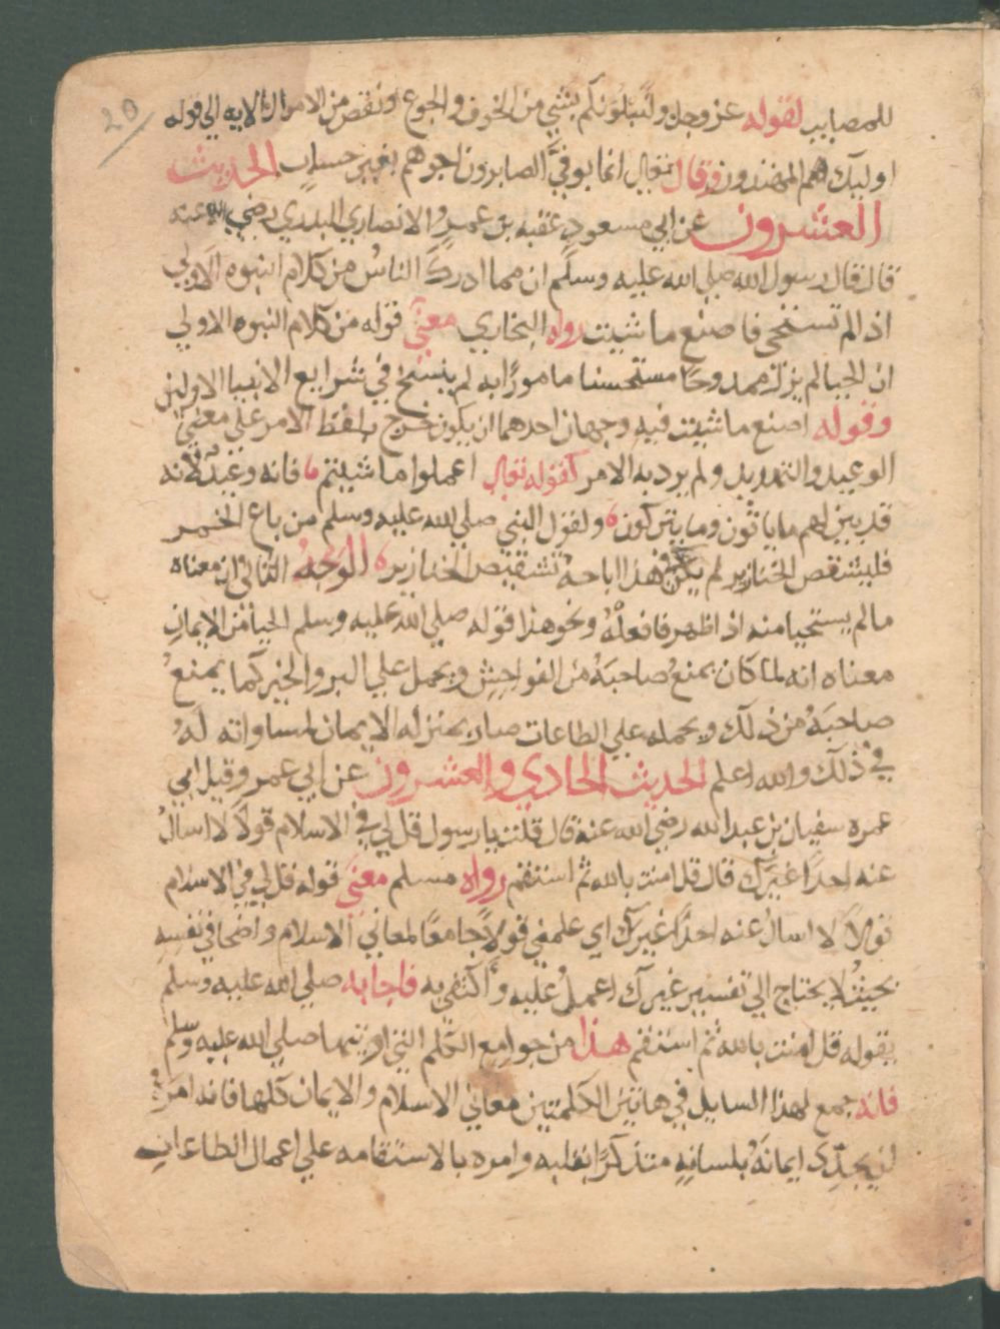 20
للمصايب لقوله عز وجل ولنبلونكم بشي من الخوف والجوع ونقص من الاموال الايه الي قوله
اوليك هم المهتدون وقال تعالي انما يوفي الصابرون اجرهم بغير حساب الحديث
العشرون عن ابي مسعود عقبه بن عمرو الانصاري البدري رضي الله عنه
قال قال رسول الله صلي الله عليه وسلم ان مما ادرك الناس من كلام النبوه الاولي
اذا لم تستحي فاصنع ما شيت رواه البخاري معني قوله من كلام النبوه الاولي
ان الحيا لم يزل ممدوحا مستحسنا مامورا به لم ينسخ في شرايع الانبيا الاولين
وقوله اصنع ما شيت فيه وجهان احدهما ان يكون خرج بلفظ الامر علي معني
الوعيد والتهديد ولم يرد به الامر كقوله تعالي اعملوا ما شيتم فانه وعيد لانه
قد بين لهم ما ياتون وما يتركون ولقول النبي صلي الله عليه وسلم من باع الخمر
فليشقص الخنازير لم يكن في هذا اباحة تشقيص الخنازير الوجه الثاني ان معناه
ما لم يستحيا منه اذا ظهر فافعله ونحو هذا قوله صلي الله عليه وسلم الحيا من الايمان
معناه انه لما كان يمنع صاحبه من الفواحش ويحمل علي البر والخير كما يمنع
صاحبه من ذلك ويحمله علي الطاعات صار بمنزله الايمان لمساواته له
في ذلك والله اعلم الحديث الحادي والعشرون عن ابي عمرو وقيل ابي
عمره سفيان بن عبد الله رضي الله عنه قال قلت يا رسول قل لي في الاسلام قولا لا اسال
عنه احدا غيرك قال قل امنت بالله ثم استقم رواه مسلم معني قوله قل لي في الاسلام
قولا لا اسال عنه احدا غيرك اي علمني قولا جامعا لمعاني الاسلام واضحا في نفسه
بحيث لا يحتاج الي تفسير غيرك اعمل عليه واكتفي به فاجابه صلي الله عليه وسلم
بقوله قل امنت بالله ثم استقم هذا من جوامع الكلم التي اوتيها صلي الله عليه وسلم
فانه جمع لهذا السايل في هاتين الكلمتين معاني الاسلام والايمان كلها فانه امره
ان يجدد ايمانه بلسانه متذكرا بقلبه وامره بالاستقامه علي اعمال الطاعات